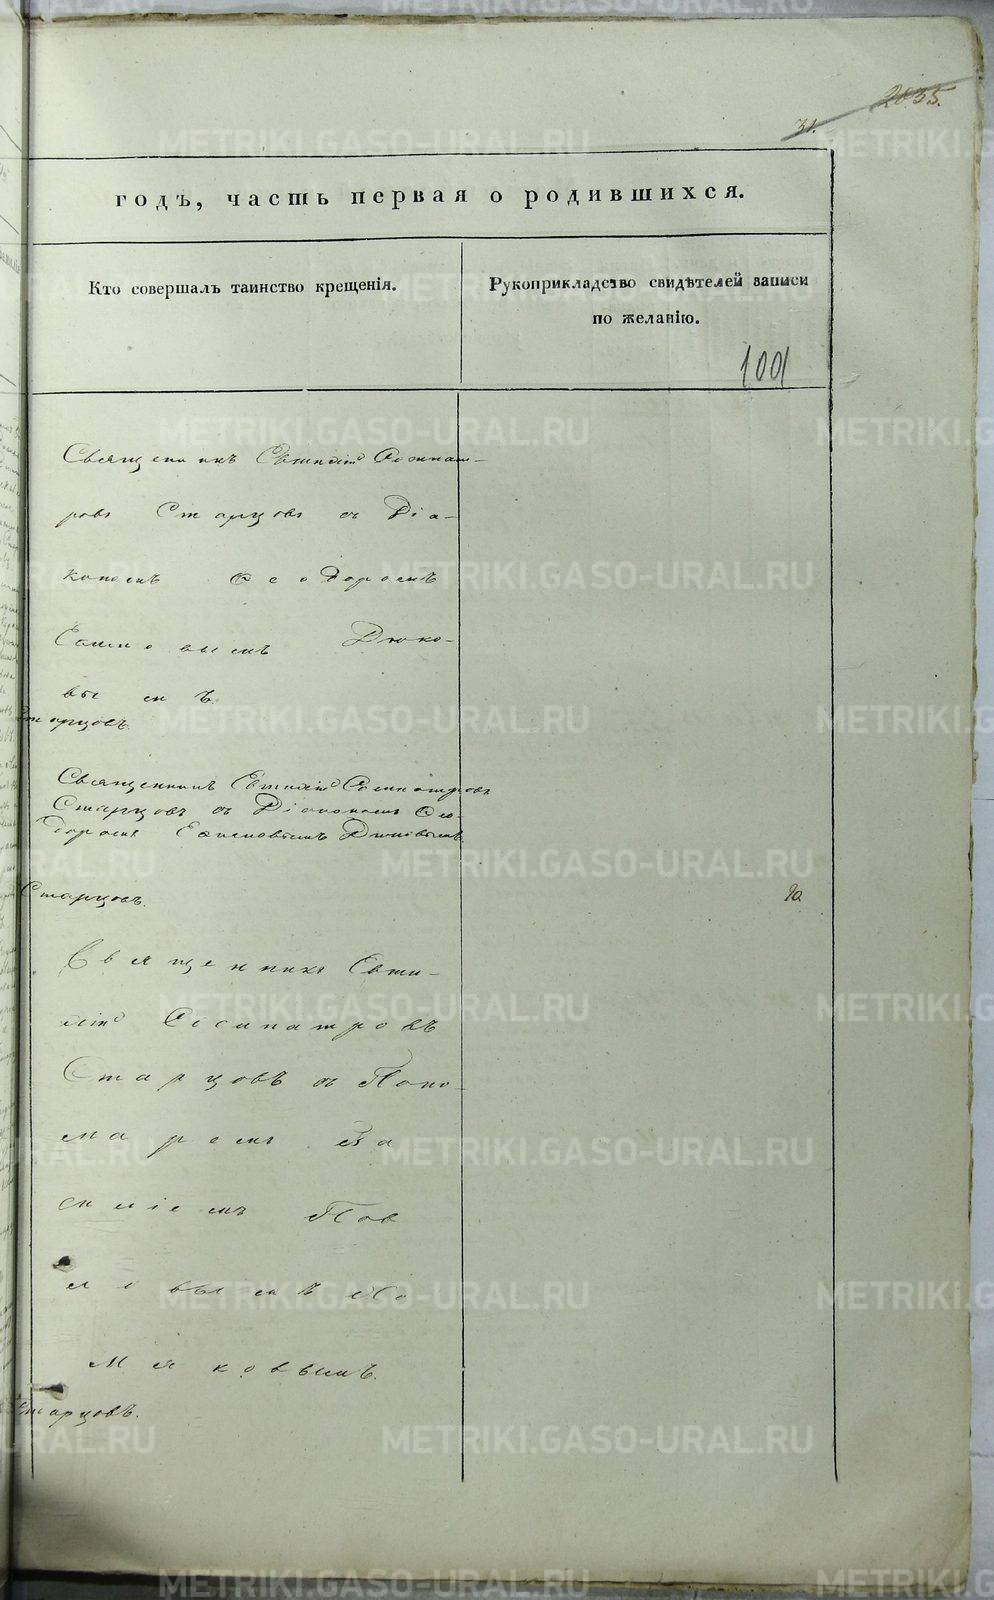 2035.
31.
годъ, часть первая о родившихся.
Кто совершалъ таинство крещенія.
Рукоприкладство свидѣтелей записи
по желанію.
1001
Священникъ Евтихій Сосипат-
ровъ Старцовъ съ Діа-
кономъ Ѳеодоромъ
Дюко-
вымъ.
Старцовъ.
Священникъ Евтихій Сосипатровъ
Старцовъ съ Діакономъ Ѳео-
доромъ Дюковымъ.
Старцовъ.
Священникъ Евти-
хій Сосипатровъ
Старцовъ съ Поно-
маремъ Ва
силіемъ Пав
ловымъ По
мяковымъ.
Старцовъ.
METRIKI.GASO-URAL.RU